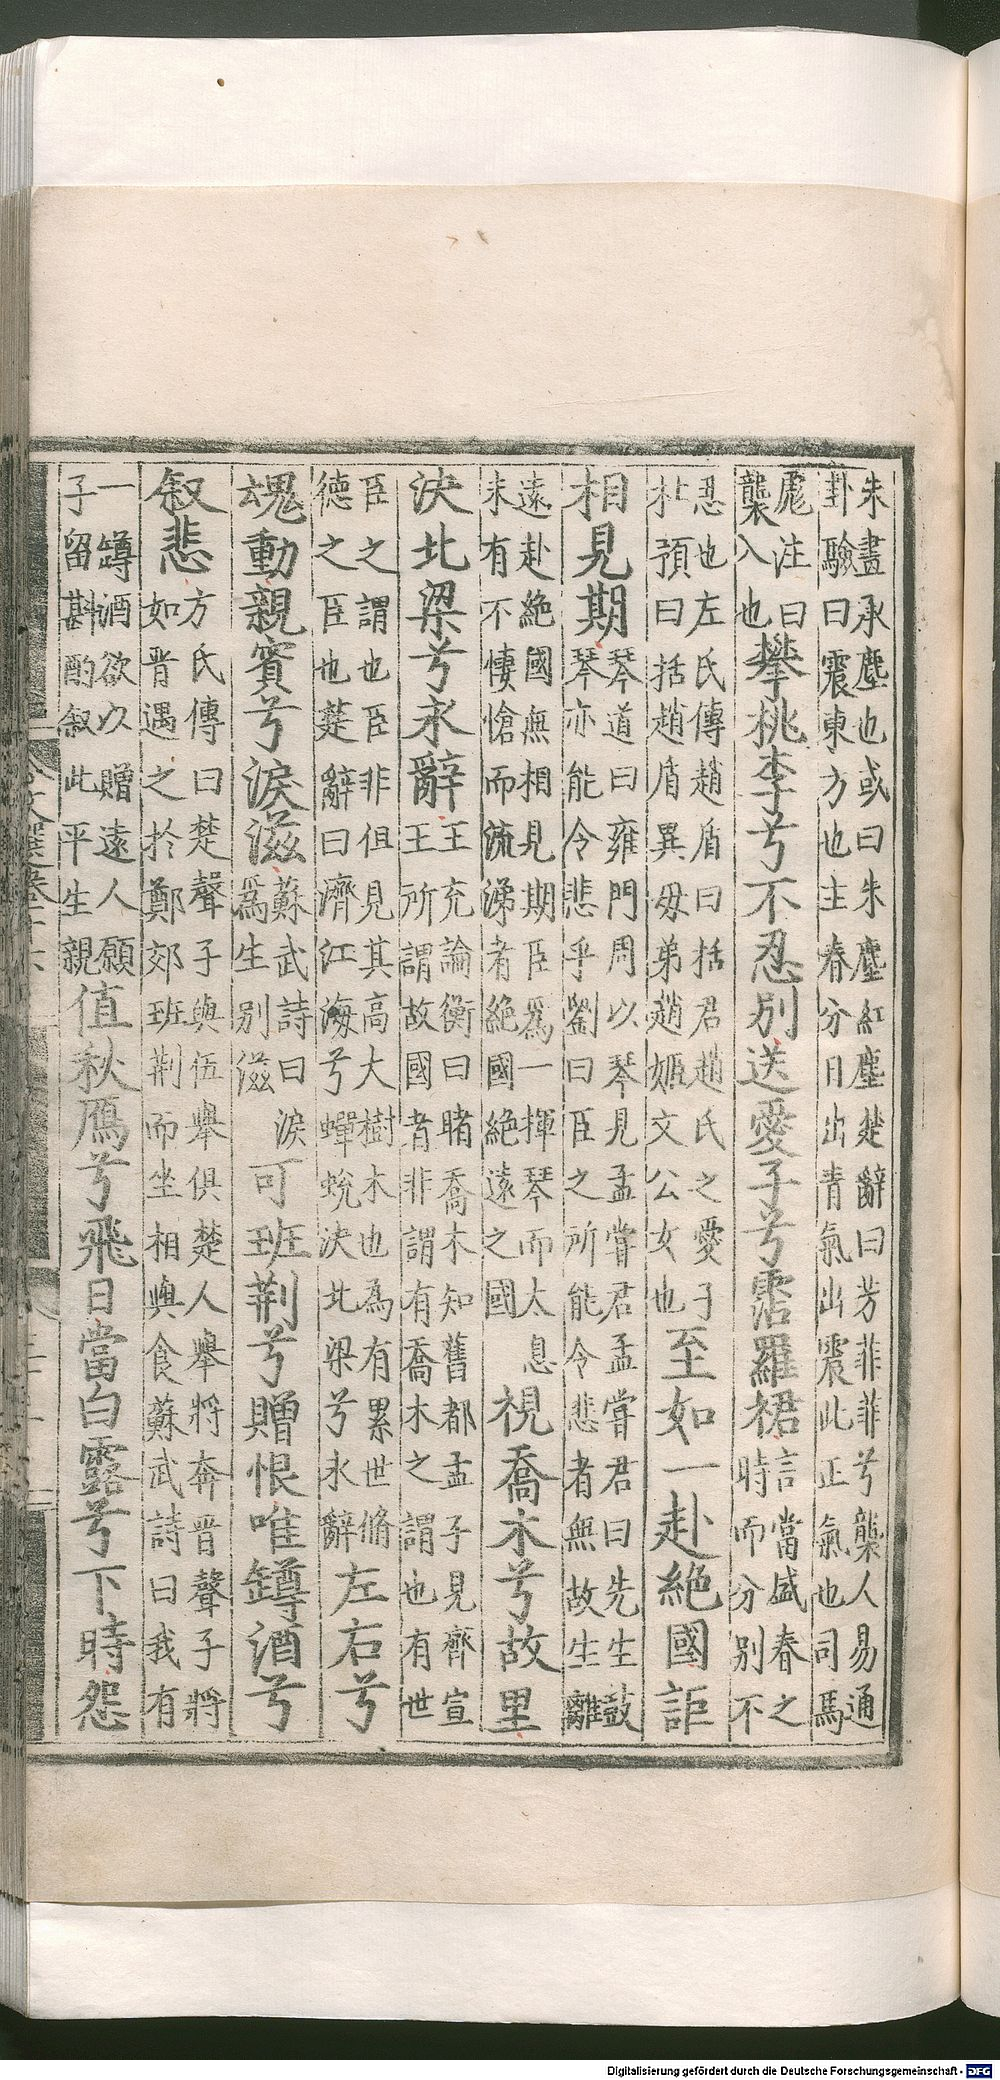 朱畫承塵也或曰朱塵紅塵楚辭曰芳菲菲兮襲人易通
卦驗曰震東方也主春分日出青氣出震此正氣也司馬
彪注曰
襲入也
攀桃李兮不忍別送愛子兮霑羅裙
言當盛春之
時而分別不
忍也左氏傳趙盾曰括君趙氏之愛子
杜預曰括趙盾異母弟趙姬文公女也
至如一赴絕國詎
相見期
琴道曰雍門周以琴見孟嘗君孟嘗君曰先生鼓
琴亦能令悲乎劉曰臣之所能令悲者無故生離
遠赴絕國無相見期臣爲一揮琴而太息
未有不悽愴而流涕者絕國絕遠之國
視喬木兮故里
決北梁兮永辭
王充論衡曰睹喬木知舊都孟子見齊宣
王所謂故國者非謂有喬木之謂也有世
臣之謂也臣非但見其高大樹木也為有累世脩
德之臣也楚辭曰濟江海兮蟬蛻決北梁兮永辭
左右兮
魂動親賓兮淚滋
蘇武詩曰淚
爲生別滋
可班荆兮贈恨唯罇酒兮
叙悲
方氏傳曰楚聲子與伍舉俱楚人舉將奔晋聲子將
如晋遇之於鄭郊班荆而坐相與食蘇武詩曰我有
一罇酒欲以贈遠人願
子留斟酌叙此平生親
值秋鴈兮飛日當白露兮下時怨
Digitalisierung gefördert durch die Deutsche Forschungsgemeinschaft - DFG